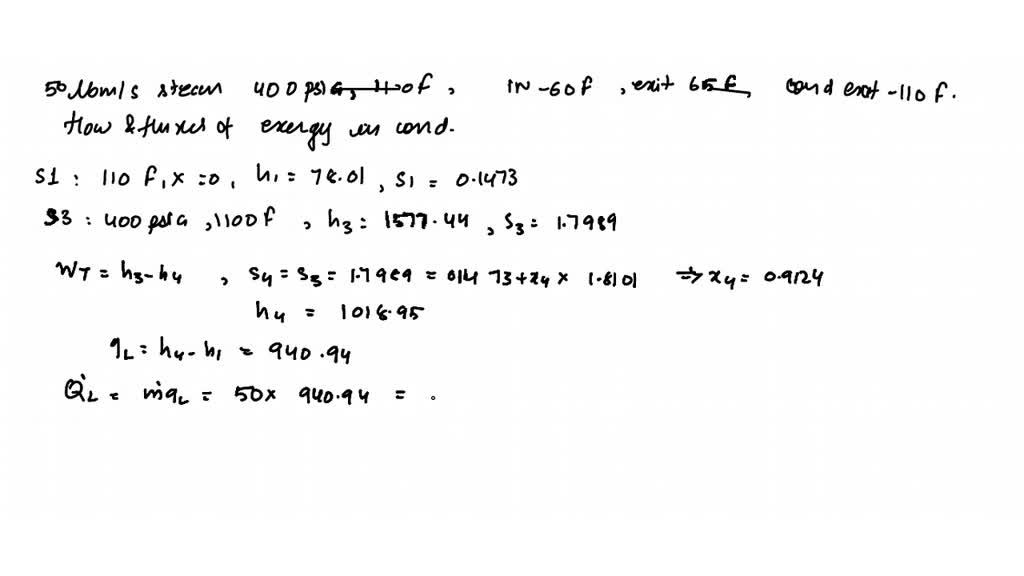 50 lbm/s steam 400 psia, 1100f, IN -60f, exit 65 f, cond exit -110 f.
flow & fluxes of exergy in cond.
S1 : 110 f, x = 0, h1 = 78.01, S1 = 0.1473
S3 : 400 psia, 1100f, h3 = 1577.44, S3 = 1.7989
WT = h3 - h4, S4 = S3 = 1.7989 = 0.1473 + x4 × 1.8101 ⇒ x4 = 0.9124
h4 = 1018.95
qL = h4 - h1 = 940.94
Q̇L = ṁqL = 50 × 940.94 = .